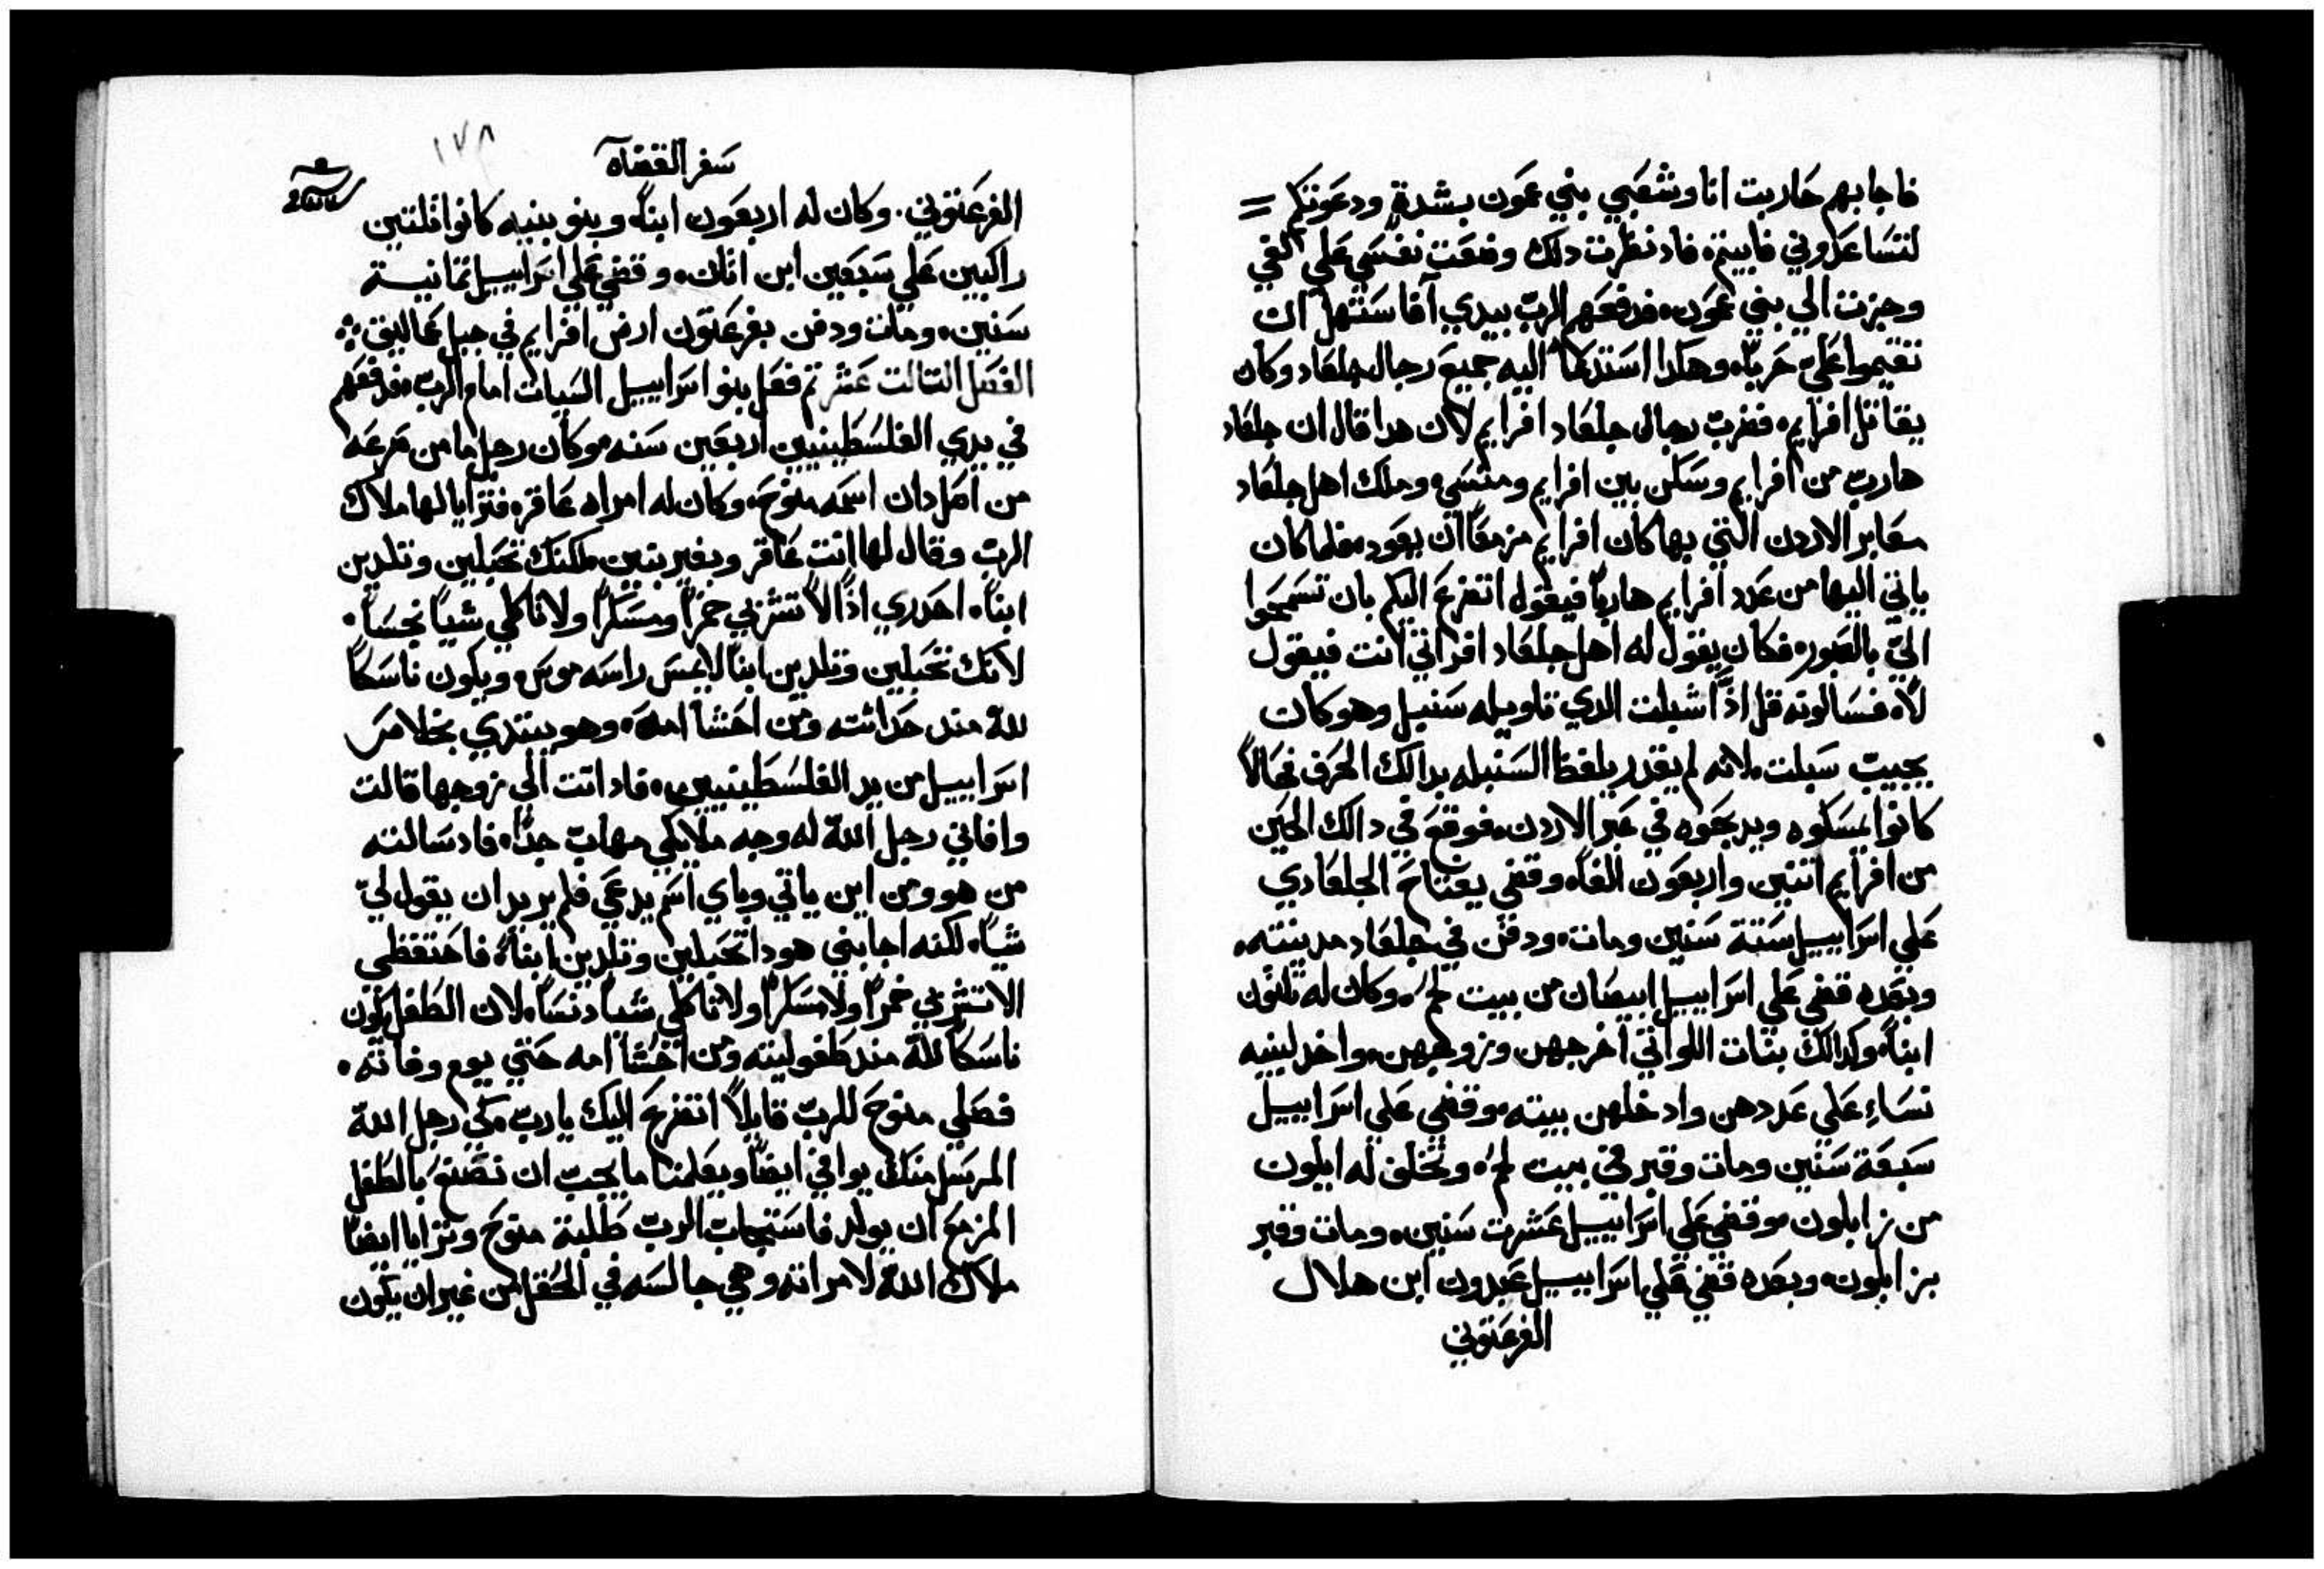 فاجابهم حاربت انا وشعبي بني عمون بشدةٍ ودعوتكم =
لتساعدوني فابيتم، فاد نظرت دلك وضعت نفسي علي كفي
وجزت الي بني عمون، فدفعهم الرب بيدي آفاستهل ان
تقيموا عليّ حربًا، وهكدا استدعا اليه جميع رجال جلعاد وكان
يقاتل افرايم، فضرب رجال جلعاد افرايم لان هدا قال ان جلعاد
هارب من افرايم وسكن بين افرايم ومنسي، وملك اهل جلعاد
معابر الاردن التي بها كان افرايم مزمعًا ان يعود، فلما كان
ياتي اليها من عدد افرايم هاربًا فيقول اتضرع اليكم بان تسمحوا
اليّ بالعبور، فكان يقول له اهل جلعاد افراتي انت فيقول
لا، فسالونه قل اذًا شبلت الدي تاويله سنبل وهو كان
يجيب سبلت، لانه لم يقدر يلفظ السنبله بدالك الحرف فحالاً
كانوا يمسكوه ويدبحوه في عبر الاردن، فوقع في دالك الحين
من افرايم اتنين واربعون الفًا، وقضي يفتاح الجلعادي
علي اسراييل ستة سنين ومات، ودفن في جلعاد مدينته،
وبعده قضي علي اسراييل ابيصان من بيت لحم، وكان له تلتون
ابنًا، وكدالك بنات اللواتي اخرجهن وزوجهن، واخد لبنيه
نساءِ علي عددهن وادخلهن بيته، وقضي علي اسراييل
سبعة سنين ومات وقبر في بيت لحم، وتخلف له ايلون
من زابلون، وقضي علي اسراييل عشرت سنين، ومات وقبر
بزابلون، وبعده قضي علي اسراييل عبدون ابن هلال
الفرعتوني
١٧٨
سفر القضاه
الفرعتوني. وكان له اربعون ابنًا وبنو بنيه كانوا تلتين
راكبين علي سبعين ابن اتان، وقضي علي اسراييل تمانية
سنين، ومات ودفن بفرعتون ارض افرايم في جبل عماليق
الفصل التالت عشر تم فعل بنو اسراييل السيات امام الرب، فدفعهم
في يدي الفلسطينيين اربعين سنه، وكان رجل ما من صرعه
من اصل دان اسمه منوح، وكان له امراه عاقر، فترايا لها ملاك
الرب وقال لها انت عاقر وبغير بنين، لكنك تحبلين وتلدين
ابنًا، احدري اذًا الا تشربي خمرًا ومسكرًا ولا تاكلي شيًا نجسًا.
لانك تحبلين وتلدين ابنًا لا يمس راسه موس، ويكون ناسكًا
لله مند حداثته ومن احشا امه، وهو يبتدي بخلاص
اسراييل من يد الفلسطينيين، فاد اتت الي زوجها قالت
وافاني رجل الله له وجه ملايكي مهاب جدًا، فاد سالته
من هو ومن اين ياتي وباي اسم يدعي فلم يريد ان يقول ليّ
شيًا، لكنه اجابني هودا تحبلين وتلدين ابنًا، فاحتفظي
الا تشربي خمرًا ولا مسكرًا ولا تاكلي شيًا دنسًا، لان الطفل يكون
ناسكًا لله مند طفوليته ومن احشا امه حتي يوم وفاته،
فصلي منوح للرب قايلاً اتضرع اليك يارب، كي رجل الله
المرسل منك يوافي ايضًا ويعلمنا ما يجب ان نصنع بالطفل
المزمع ان يولد فاستجاب الرب طلبة منوح وترايا ايضًا
ملاك الله لامراته وهي جالسه في الحقل من غير ان يكون